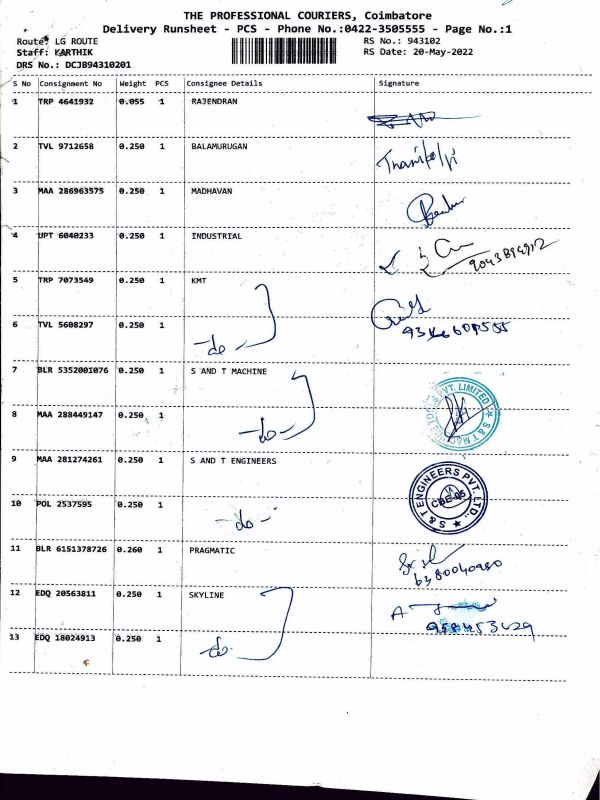 THE PROFESSIONAL COURIERS, Coimbatore
Delivery Runsheet - PCS - Phone No.:0422-3505555 - Page No.:1
Route: LG ROUTE RS No.: 943102
Staff: KARTHIK RS Date: 20-May-2022
DRS No.: DCJB94310201
S No Consignment No Weight PCS Consignee Details Signature
1 TRP 4641932 0.055 1 RAJENDRAN
2 TVL 9712658 0.250 1 BALAMURUGAN
3 MAA 286963575 0.250 1 MADHAVAN
4 UPT 6040233 0.250 1 INDUSTRIAL
5 TRP 7073549 0.250 1 KMT
6 TVL 5608297 0.250 1 -do-
7 BLR 5352001076 0.250 1 S AND T MACHINE
8 MAA 288449147 0.250 1 -do-
9 MAA 281274261 0.250 1 S AND T ENGINEERS S & T ENGINEERS PVT. LTD.,
10 POL 2537595 0.250 1 -do-
11 BLR 6151378726 0.260 1 PRAGMATIC
6380040980
12 EDQ 20563811 0.250 1 SKYLINE
13 EDQ 18024913 0.250 1 -do-